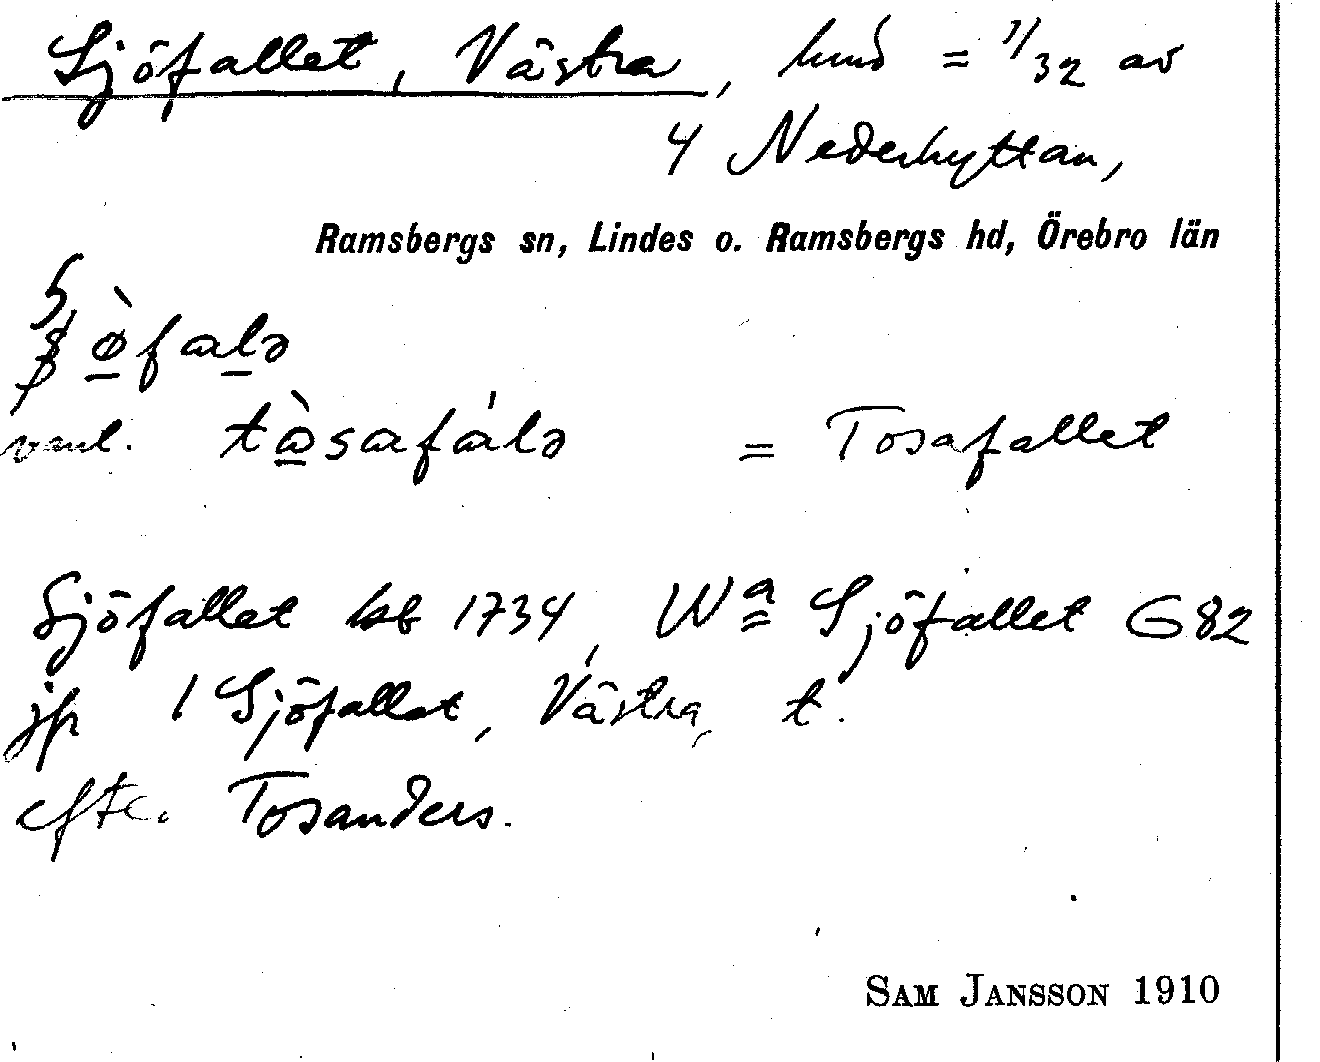 Sjöfallet, Västra, hmd = 1/32 av
4 Nederhyttan,
Ramsbergs sn, Lindes o. Ramsbergs hd, Örebro län
ø̀falə
vanl. tɷ̀safálə = Tosafallet
Sjöfallet kb 1734, Wa Sjöfallet G 82
jfr 1 Sjöfallet, Västra, t.
efter Tosanders.
SAM JANSSON 1910